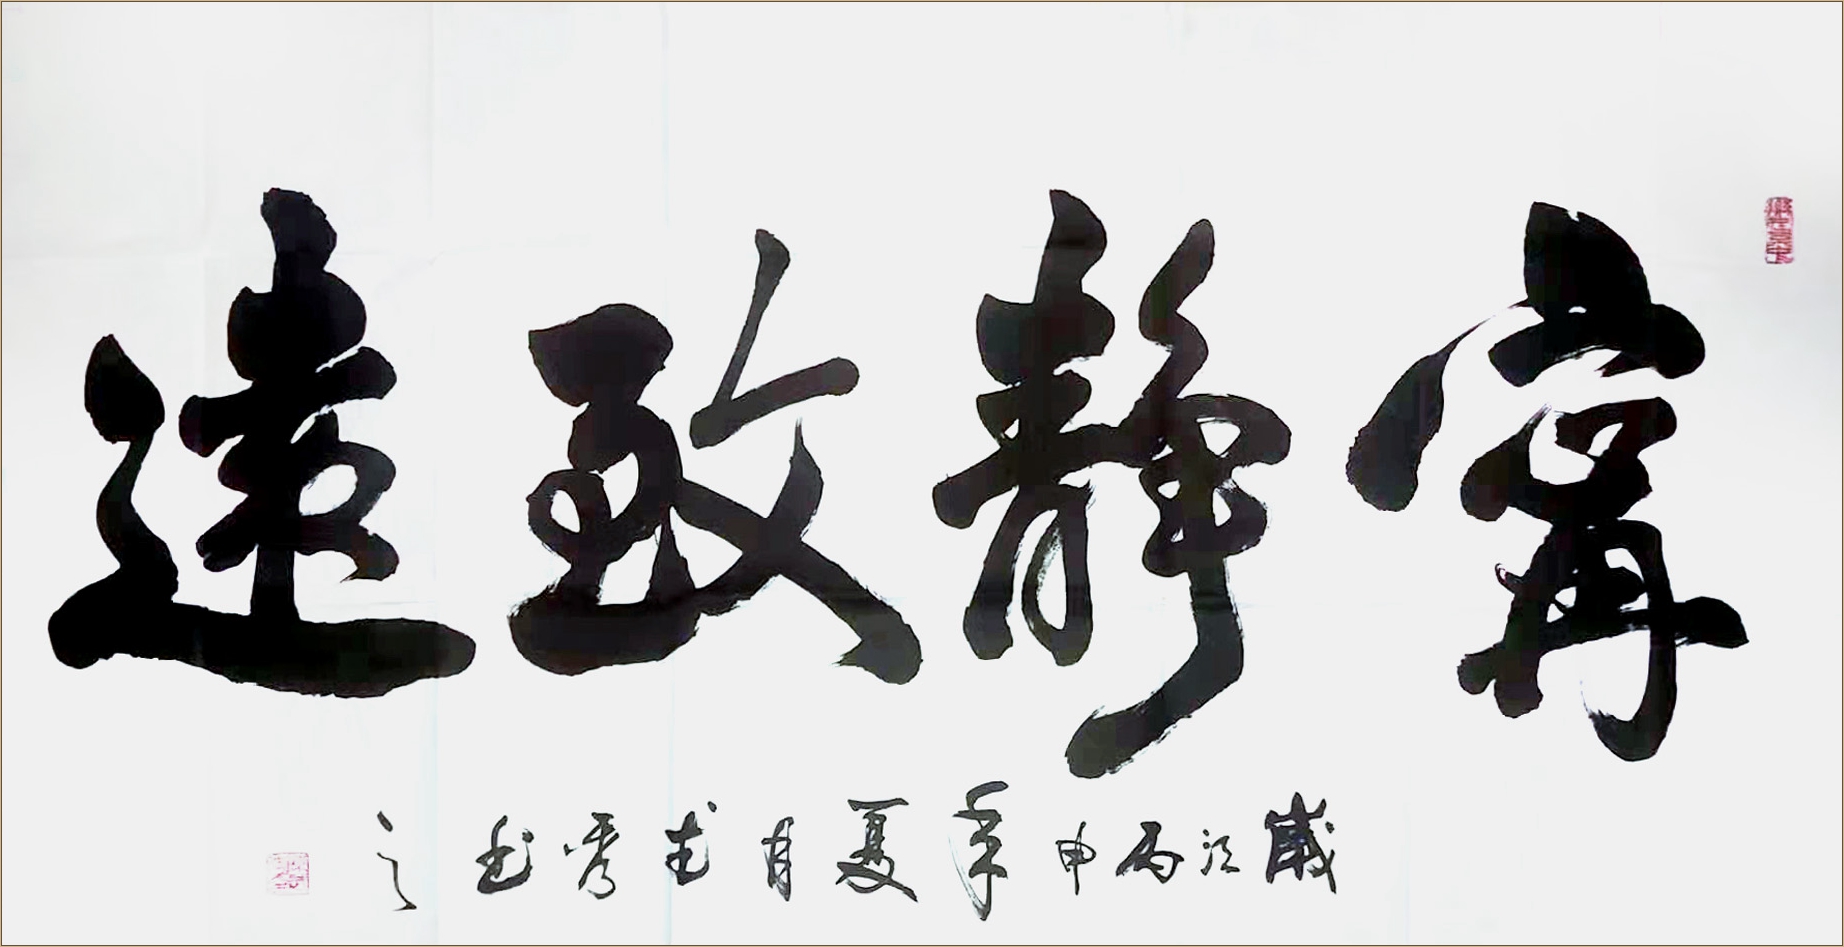 寧靜致遠
歲次丙申年夏月武秀書之